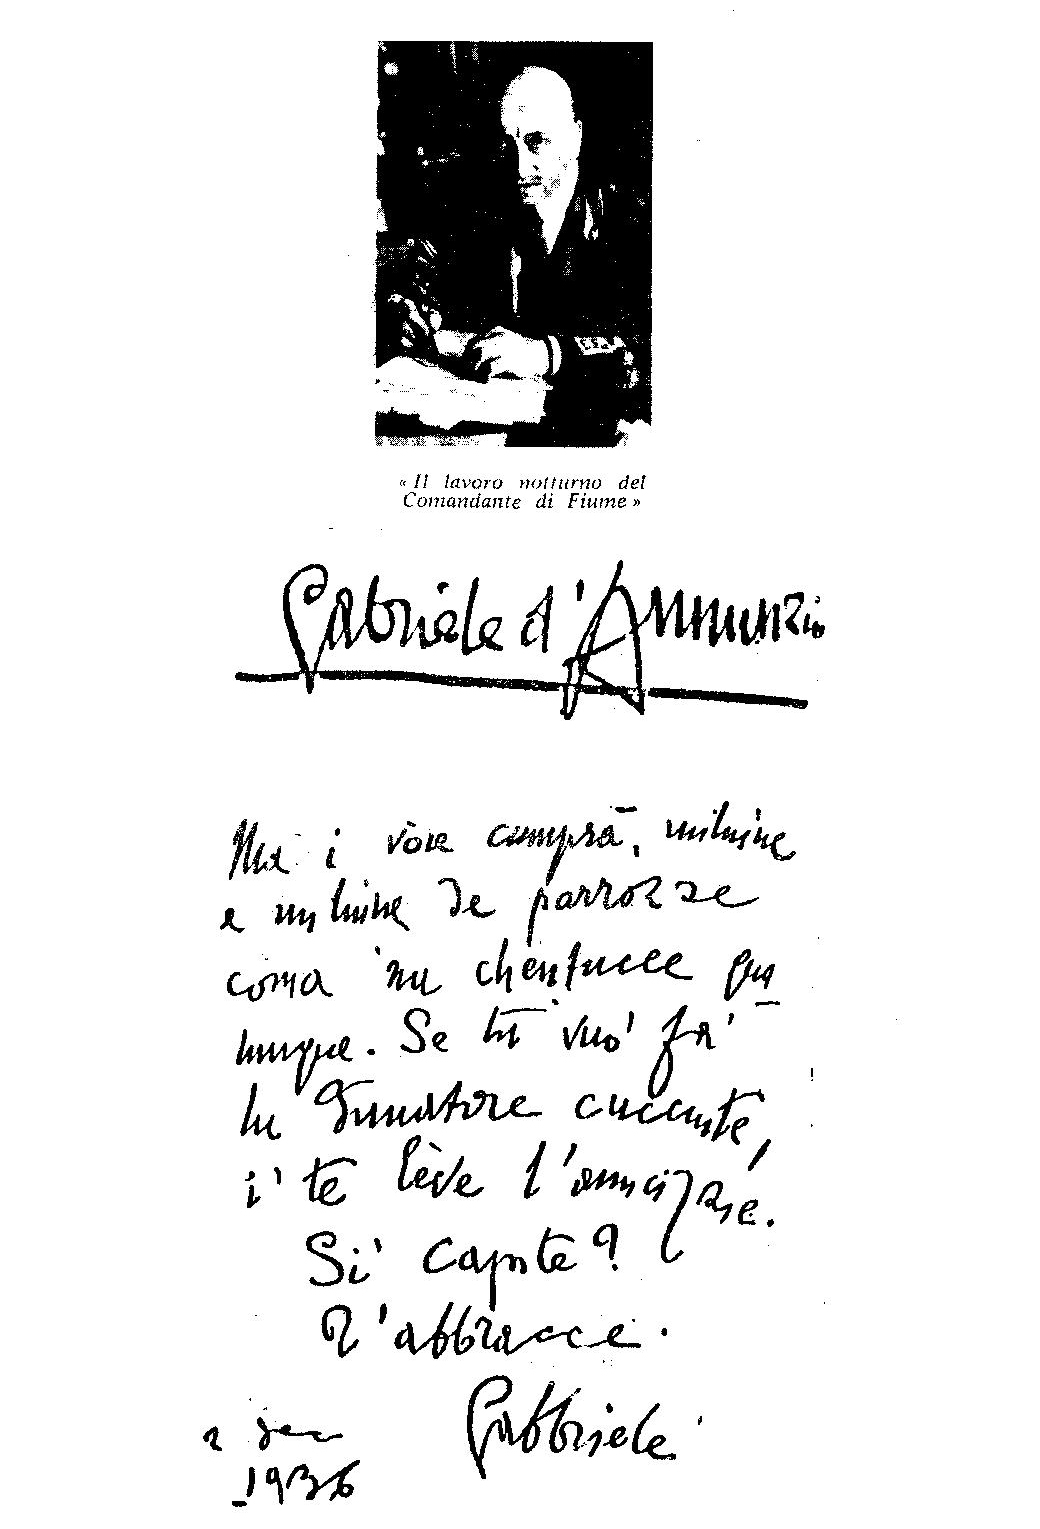 « Il lavoro notturno del
Comandante di Fiume »
Gabriele d'Annunzio
Ma i' vòje cumprà, mihine
e mihine de parrozze
coma 'nu chentucce qua
lunque. Se tu vuo' fa'
lu dunatore cuccute,
i' te lève l'amicizzie.
Si' capite?
T'abbracce.
Gabbriele
2 dec
1936